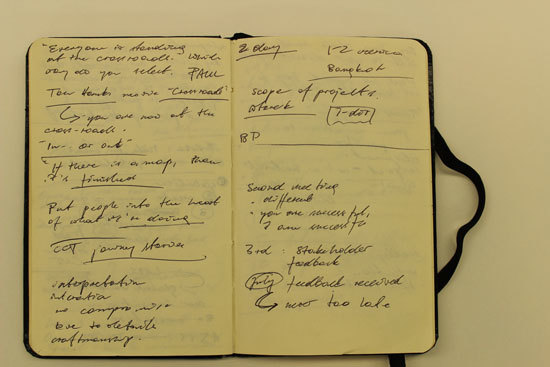 "Everyone is standing
at the crossroads. Which
way do you select. PAUL
Tom Hanks movie "Crossroads"
↳ you are now at the
cross-roads.
"In- or out"
"If there is a map, then
it's finished
Put people into the heart
of what we're doing
journey stories
interpretation
iteration
no compromise
love to details
craftmanship.
2 day 1-2
Bangkok
scope of projekts
7-dot
BP
Second meeting
. different
: you are successful,
I am successful
3rd: Stakeholder
feedback
July feedback received
↳ never too late